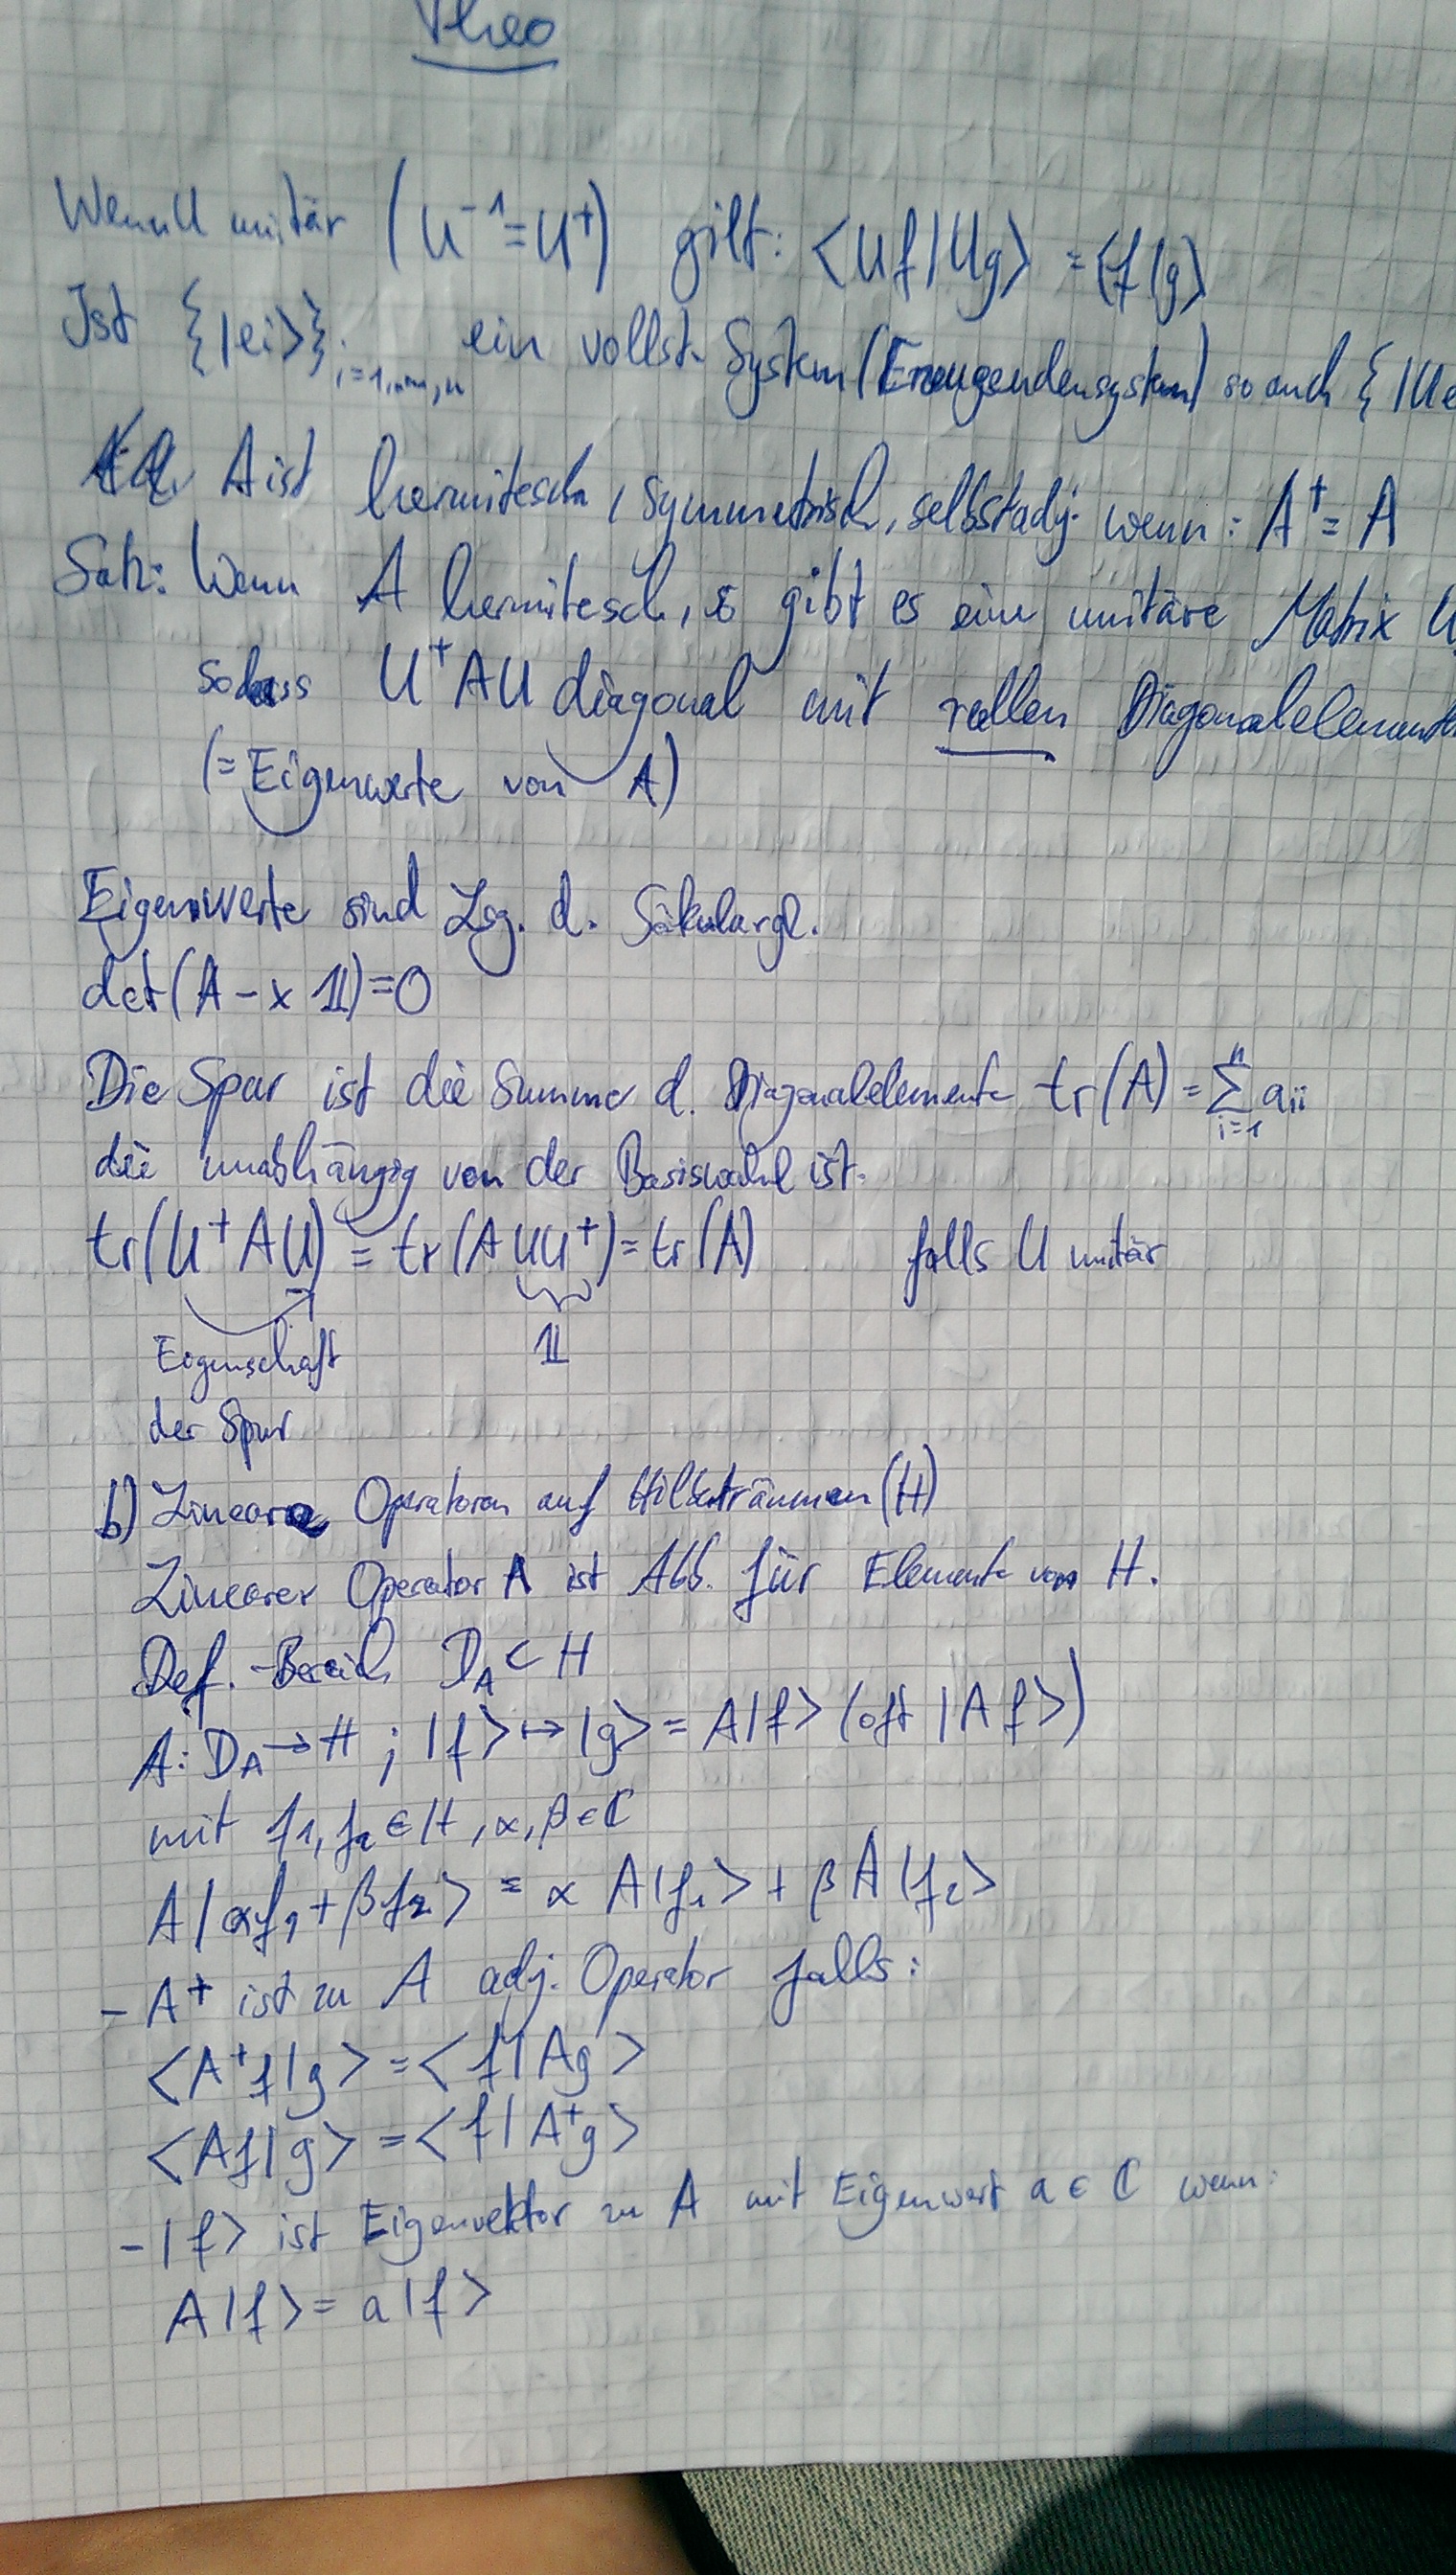 Theo
Wenn U unitär (U⁻¹=U⁺) gilt: <Uf|Ug> = <f|g>
Ist {|ei>}i=1,...,n ein vollst. System (Erzeugendensystem) so auch {|Ue
A ist hermitesch, symmetrisch, selbstadj. wenn: A⁺ = A
Satz: Wenn A hermitesch, so gibt es eine unitäre Matrix U,
sodass U⁺AU diagonal mit reellen Diagonalelementen
(= Eigenwerte von A)
Eigenwerte sind Lsg. d. Säkulargl.
det(A - x 𝟙)=0
Die Spur ist die Summe d. Diagonalelemente tr(A) = ∑ᵢ₌₁ⁿ aii
die unabhängig von der Basiswahl ist.
tr(U⁺AU) = tr(AUU⁺) = tr(A) falls U unitär
Eigenschaft 𝟙
der Spur
b) Lineare Operatoren auf Hilberträumen (H)
Linearer Operator A ist Abb. für Elemente von H.
Def.-Bereich D_A ⊂ H
A: D_A → H ; |f> ↦ |g> = A|f> (oft |Af>)
mit f₁, f₂ ∈ H, α, β ∈ ℂ
A|αf₁ + βf₂> = α A|f₁> + β A|f₂>
- A⁺ ist zu A adj. Operator falls:
<A⁺f|g> = <f|Ag>
<Af|g> = <f|A⁺g>
- |f> ist Eigenvektor zu A mit Eigenwert a ∈ ℂ wenn:
A|f> = a|f>